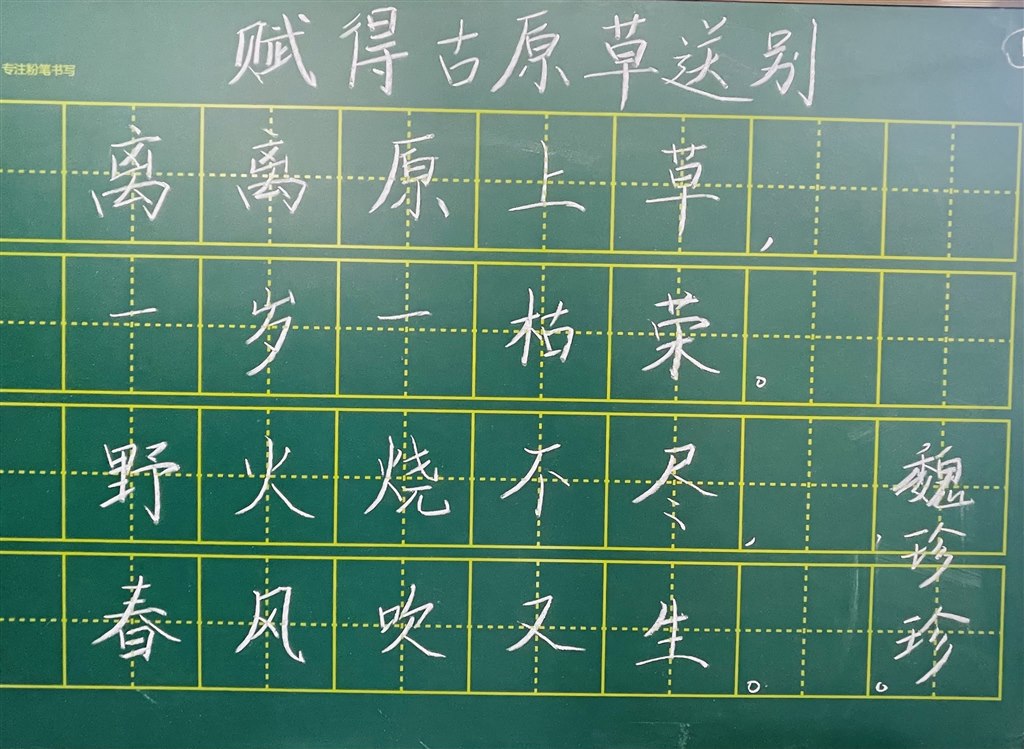 赋得古原草送别
专注粉笔书写
离离原上草，
一岁一枯荣。
野火烧不尽，
春风吹又生。
魏珍珍